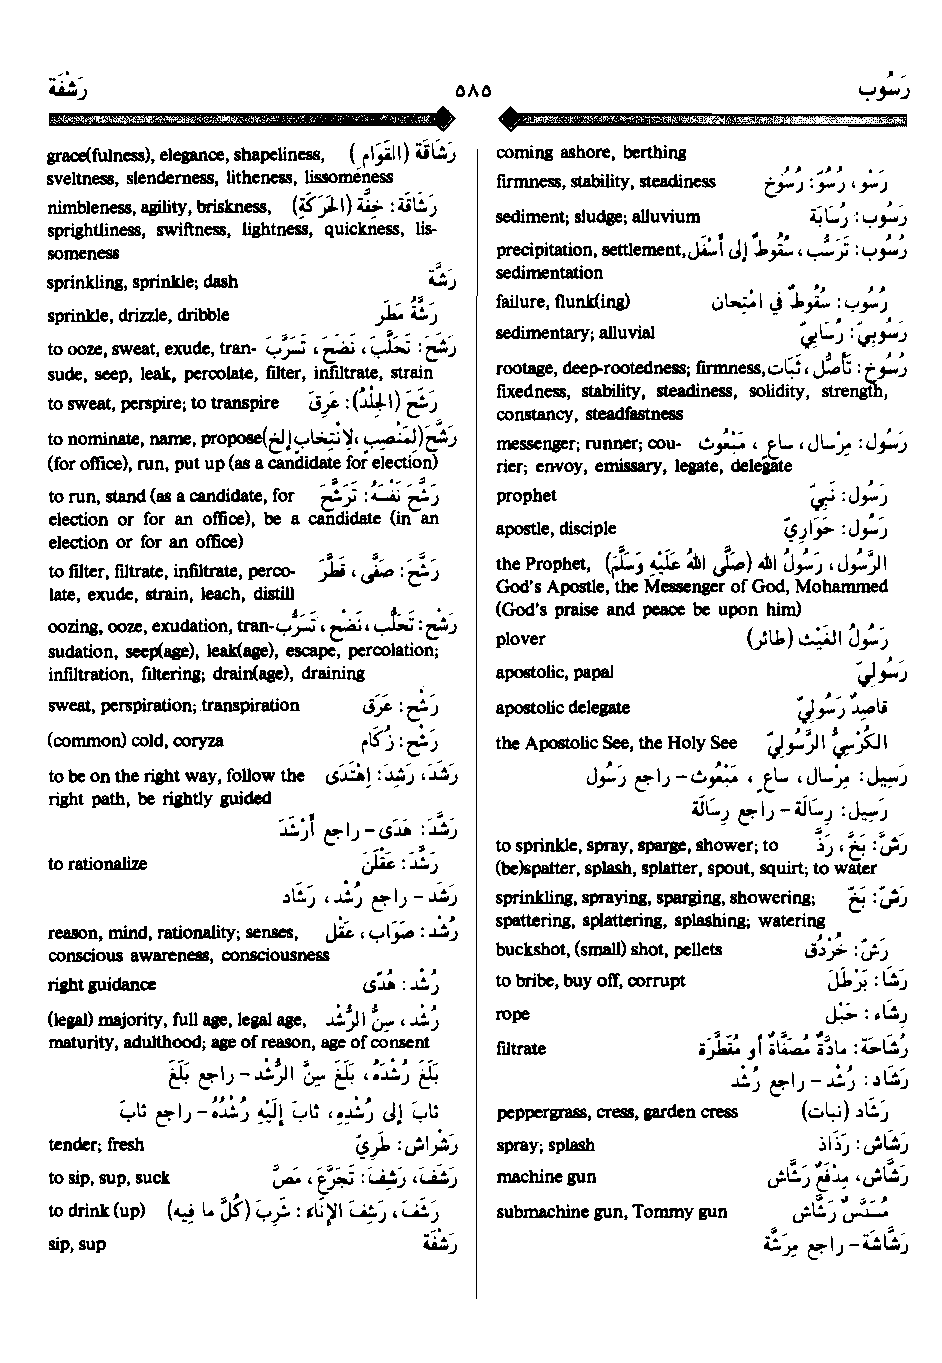 رَسُوب
٥٨٥
رَشْفَة
coming ashore, berthing
firmness, stability, steadiness رَسْو ، رُسُوّ : رُسُوخ
sediment; sludge; alluvium رُسُوب : رُسَابَة
precipitation, settlement, رُسُوب : تَرَسُّب ، سُقُوطٌ إلى أَسْفَل
sedimentation
failure, flunk(ing) رُسُوب : سُقُوطٌ في امْتِحان
sedimentary; alluvial رُسُوبِيّ : رُسَابِيّ
rootage, deep-rootedness; firmness, رُسُوخ : تَأَصُّل ، ثَبَات
fixedness, stability, steadiness, solidity, strength,
constancy, steadfastness
messenger; runner; cou- رَسُول : مِرْسَال ، سَاعٍ ، مَبْعُوث
rier; envoy, emissary, legate, delegate
prophet رَسُول : نَبِيّ
apostle, disciple رَسُول : حَوَارِيّ
the Prophet, الرَّسُول ، رَسُولُ الله (صَلَّى اللهُ عَلَيْهِ وَسَلَّمَ)
God's Apostle, the Messenger of God, Mohammed
(God's praise and peace be upon him)
plover رَسُولُ الغَيْث (طائر)
apostolic, papal رَسُولِيّ
apostolic delegate قاصِدٌ رَسُولِيّ
the Apostolic See, the Holy See الكُرْسِيُّ الرَّسُولِيّ
رَسِيل : مِرْسَال ، سَاعٍ ، مَبْعُوث – راجع رَسُول
رَسِيل : رِسَالَة – راجع رِسَالَة
to sprinkle, spray, sparge, shower; to رَشَّ : بَخَّ ، رَذَّ
(be)spatter, splash, splatter, spout, squirt; to water
sprinkling, spraying, sparging, showering; رَشّ : بَخّ
spattering, splattering, splashing; watering
buckshot, (small) shot, pellets رَشّ : خُرْدُق
to bribe, buy off, corrupt رَشَا : بَرْطَلَ
rope رِشَاء : حَبْل
filtrate رُشَاحَة : مادَّةٌ مُصَفَّاةٌ أو مُقَطَّرَة
رَشَاد : رُشْد – راجع رُشْد
peppergrass, cress, garden cress رَشَاد (نبات)
spray; splash رَشَاش : رَذَاذ
machine gun رَشَّاش ، مِدْفَعٌ رَشَّاش
submachine gun, Tommy gun مُسَدَّسٌ رَشَّاش
رَشَّاشَة – راجع مِرَشَّة
grace(fulness), elegance, shapeliness, رَشَاقَة (القَوَام)
sveltness, slenderness, litheness, lissomeness
nimbleness, agility, briskness, رَشَاقَة : خِفَّة (الحَرَكَة)
sprightliness, swiftness, lightness, quickness, lis-
someness
sprinkling, sprinkle; dash رَشَّة
sprinkle, drizzle, dribble رَشَّةُ مَطَر
to ooze, sweat, exude, tran- رَشَحَ : تَحَلَّبَ ، نَضَحَ ، تَسَرَّبَ
sude, seep, leak, percolate, filter, infiltrate, strain
to sweat, perspire; to transpire رَشَحَ (الجِلْدُ) : عَرِقَ
to nominate, name, propose رَشَّحَ (لِمَنْصِبٍ ، لانْتِخَابٍ إلخ)
(for office), run, put up (as a candidate for election)
to run, stand (as a candidate, for رَشَّحَ نَفْسَهُ : تَرَشَّحَ
election or for an office), be a candidate (in an
election or for an office)
to filter, filtrate, infiltrate, perco- رَشَّحَ : صَفَّى ، قَطَّرَ
late, exude, strain, leach, distill
oozing, ooze, exudation, tran- رَشْح : تَحَلُّب ، نَضْح ، تَسَرُّب
sudation, seep(age), leak(age), escape, percolation;
infiltration, filtering; drain(age), draining
sweat, perspiration; transpiration رَشْح : عَرَق
(common) cold, coryza رَشْح : زُكَام
to be on the right way, follow the رَشَدَ ، رَشِدَ : اهْتَدَى
right path, be rightly guided
رَشَّدَ : هَدَى – راجع أَرْشَدَ
to rationalize رَشَّدَ : عَقْلَنَ
رَشَد – راجع رُشْد ، رَشَاد
reason, mind, rationality; senses, رُشْد : صَوَاب ، عَقْل
conscious awareness, consciousness
right guidance رُشْد : هُدًى
(legal) majority, full age, legal age, رُشْد ، سِنُّ الرُّشْد
maturity, adulthood; age of reason, age of consent
بَلَغَ رُشْدَهُ ، بَلَغَ سِنَّ الرُّشْد – راجع بَلَغَ
ثابَ إلى رُشْدِهِ ، ثابَ إلَيْهِ رُشْدُهُ – راجع ثابَ
tender; fresh رَشْرَاش : طَرِيّ
to sip, sup, suck رَشَفَ ، رَشِفَ : تَجَرَّعَ ، مَصَّ
to drink (up) رَشَفَ ، رَشِفَ الإنَاءَ : شَرِبَ (كُلَّ ما فيه)
sip, sup رَشْفَة